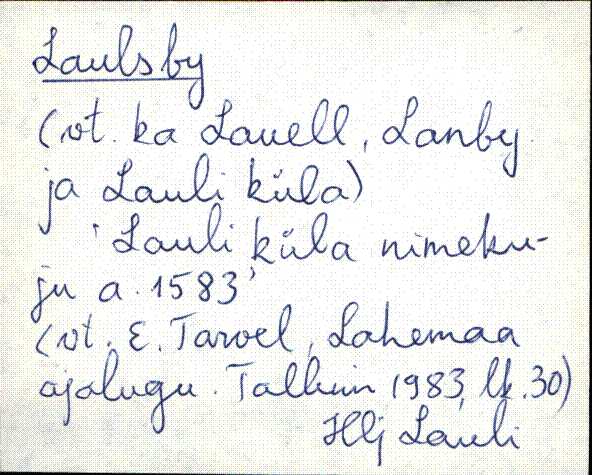 Laulsby
(vt. ka Lauell, Lanby
ja Lauli küla)
'Lauli küla nimeku-
ju a. 1583'
(vt. E. Tarvel, Lahemaa
ajalugu. Tallinn 1983, lk. 30)
Hlj Lauli